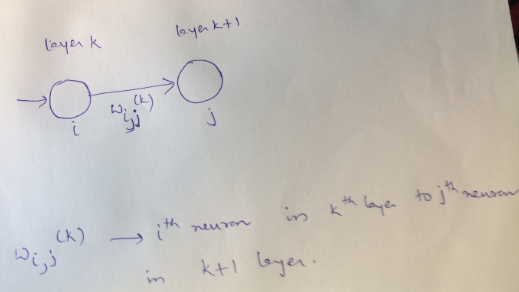 layer k
layer k+1
w i,j (k)
i
j
w i,j (k) → ith neuron in kth layer to jth neuron
in k+1 layer.